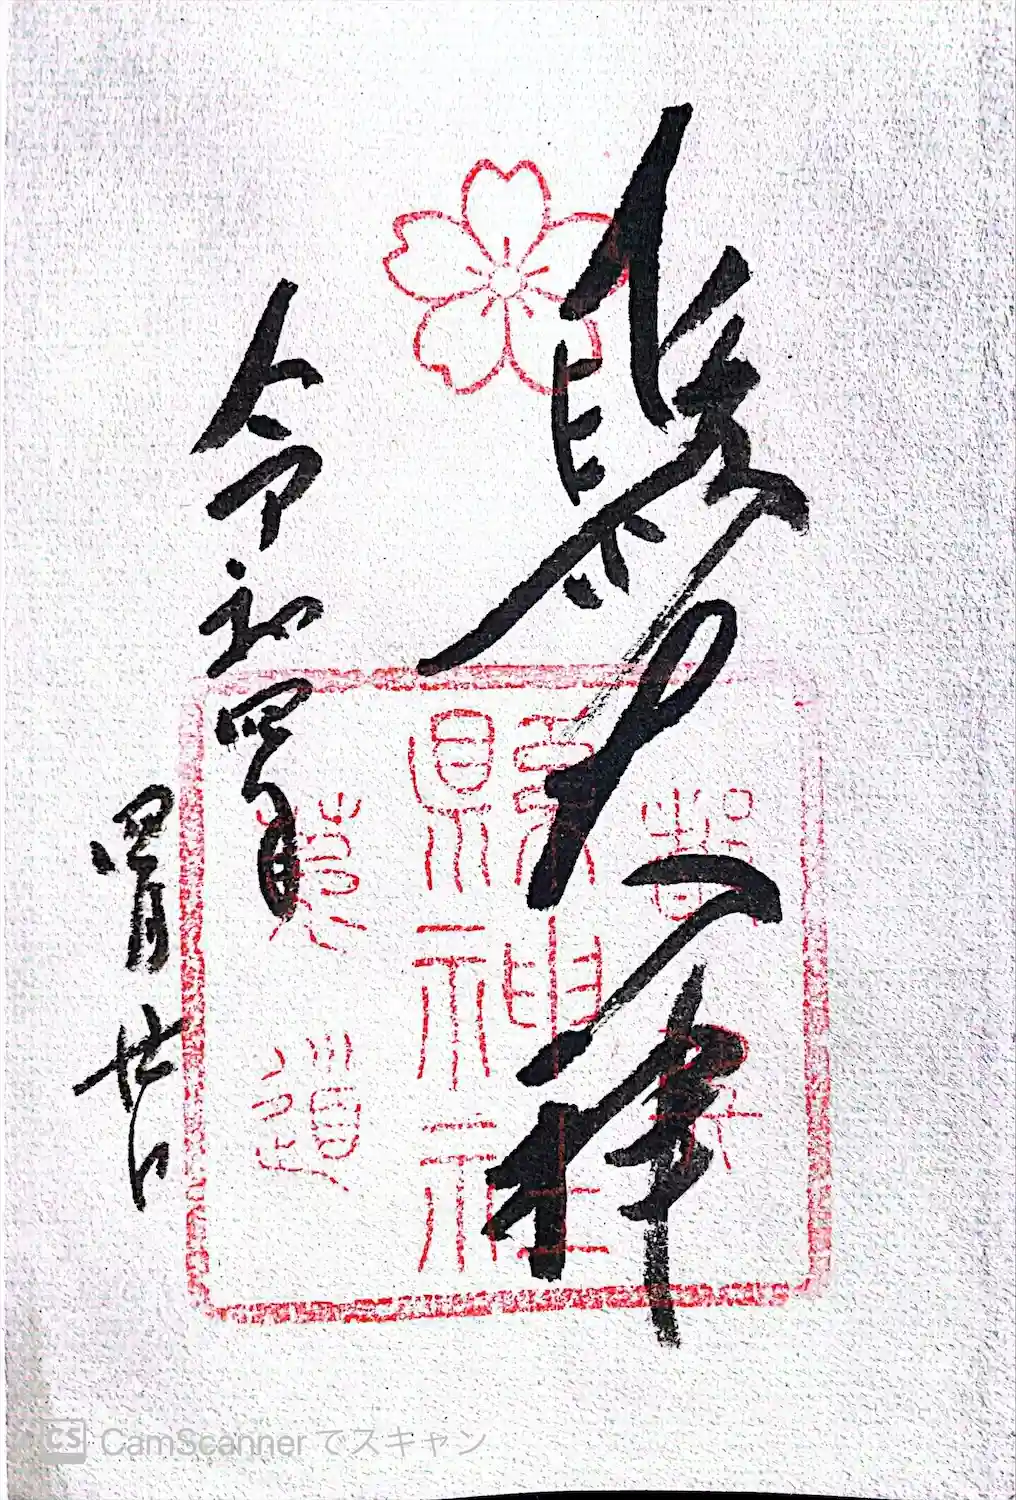 縣大神
令和四年
四月廿日
縣神社
莵道
CS CamScanner でスキャン